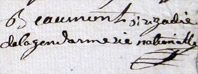 Beaumont brigadié
de la gendarmerie nationalle